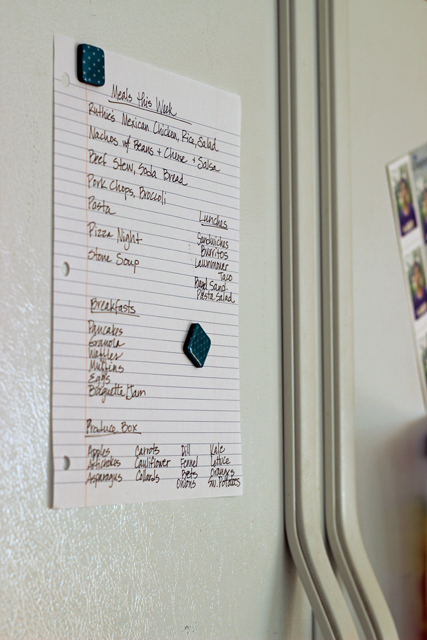 Meals this Week
Ruthie's Mexican Chicken, Rice, Salad
Nachos w/ Beans + Cheese + Salsa
Beef Stew, Soda Bread
Pork Chops, Broccoli
Pasta
Pizza Night
Stone Soup
Lunches
Sandwiches
Burritos
Lawnmower
Taco
Beef Sand
Pasta Salad
Breakfasts
Pancakes
Granola
Waffles
Muffins
Eggs
Baguette/Jam
Produce Box
Apples Carrots Dill Kale
Artichokes Cauliflower Fennel Lettuce
Asparagus Collards Beets Oranges
Onions Sw. Potatoes